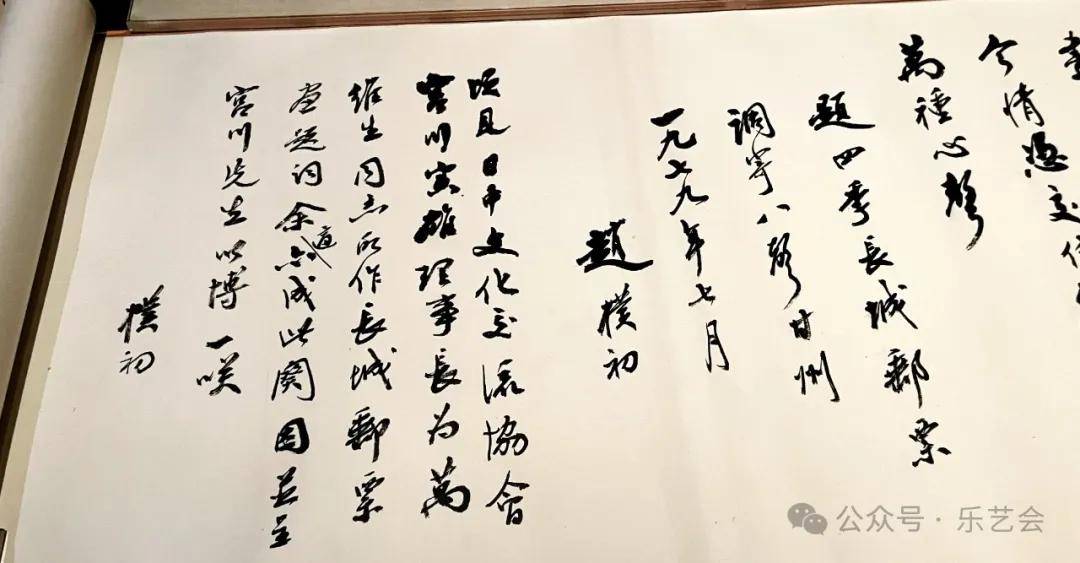 今情憑交
萬種心聲
題四季長城郵票
調寄八聲甘州
一九七九年七月
趙樸初
頃見日中文化交流協會
宮川寅雄理事長为萬
維生同志所作長城郵票
畫題詞余亦成此闋因並呈
宮川先生以博一咲
樸初
公众号·乐艺会